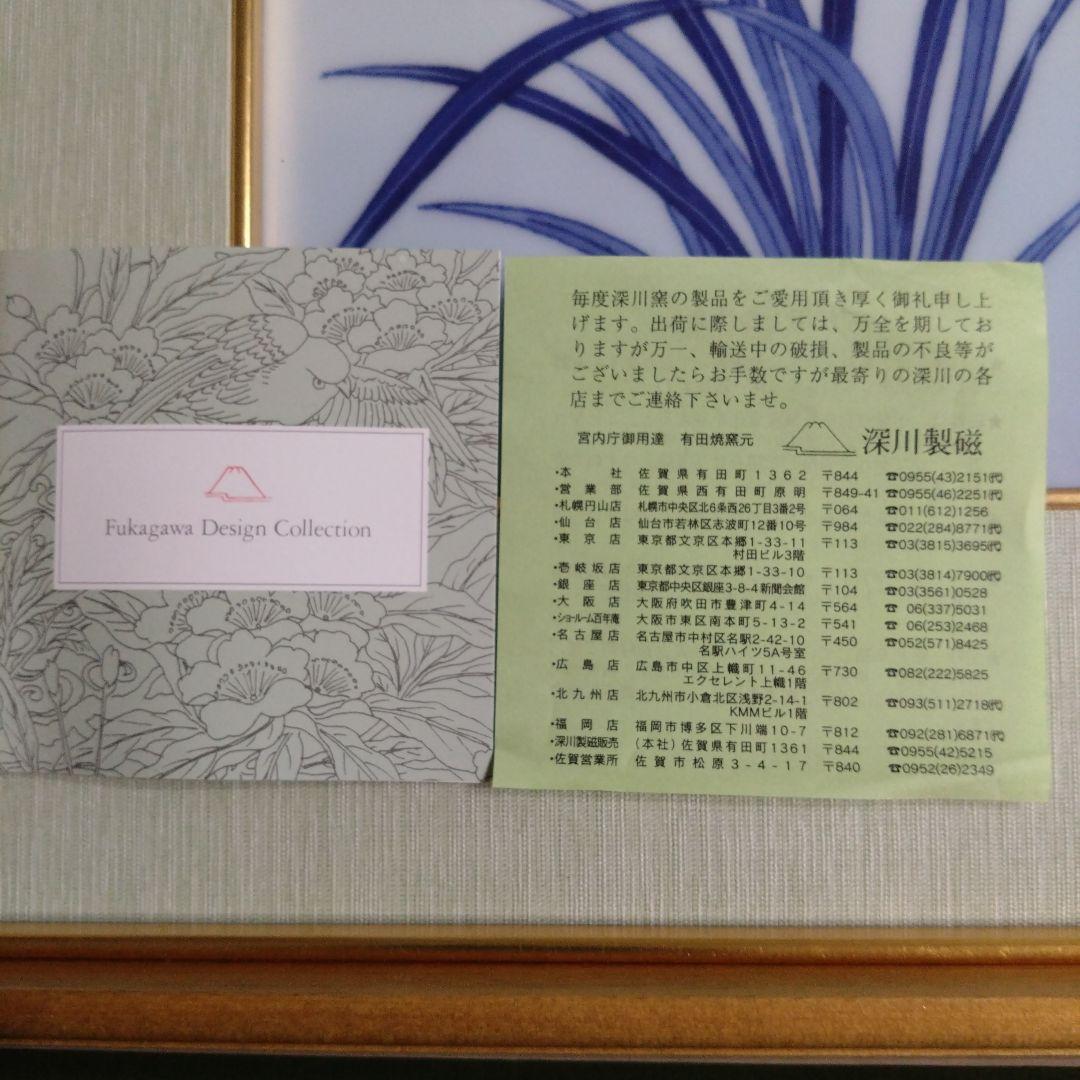 Fukagawa Design Collection
毎度深川窯の製品をご愛用頂き厚く御礼申し上
げます。出荷に際しましては、万全を期してお
りますが万一、輸送中の破損、製品の不良等が
ございましたらお手数ですが最寄りの深川の各
店までご連絡下さいませ。
宮内庁御用達 有田焼窯元 深川製磁
・本社 佐賀県有田町1362 〒844 ☎0955(43)2151㈹
・営業部 佐賀県西有田町原明 〒849-41 ☎0955(46)2251㈹
・札幌円山店 札幌市中央区北6条西26丁目3番2号 〒064 ☎011(612)1256
・仙台店 仙台市若林区志波町12番10号 〒984 ☎022(284)8771㈹
・東京店 東京都文京区本郷1-33-11 〒113 ☎03(3815)3695㈹
村田ビル3階
・壱岐坂店 東京都文京区本郷1-33-10 〒113 ☎03(3814)7900㈹
・銀座店 東京都中央区銀座3-8-4新聞会館 〒104 ☎03(3561)0528
・大阪店 大阪府吹田市豊津町4-14 〒564 ☎06(337)5031
・ショールーム百年庵 大阪市東区南本町5-13-2 〒541 ☎06(253)2468
・名古屋店 名古屋市中村区名駅2-42-10 〒450 ☎052(571)8425
名駅ハイツ5A号室
・広島店 広島市中区上幟町11-46 〒730 ☎082(222)5825
エクセレント上幟1階
・北九州店 北九州市小倉北区浅野2-14-1 〒802 ☎093(511)2718㈹
KMMビル1階
・福岡店 福岡市博多区下川端10-7 〒812 ☎092(281)6871㈹
・深川製磁販売 (本社)佐賀県有田町1361 〒844 ☎0955(42)5215
・佐賀営業所 佐賀市松原3-4-17 〒840 ☎0952(26)2349